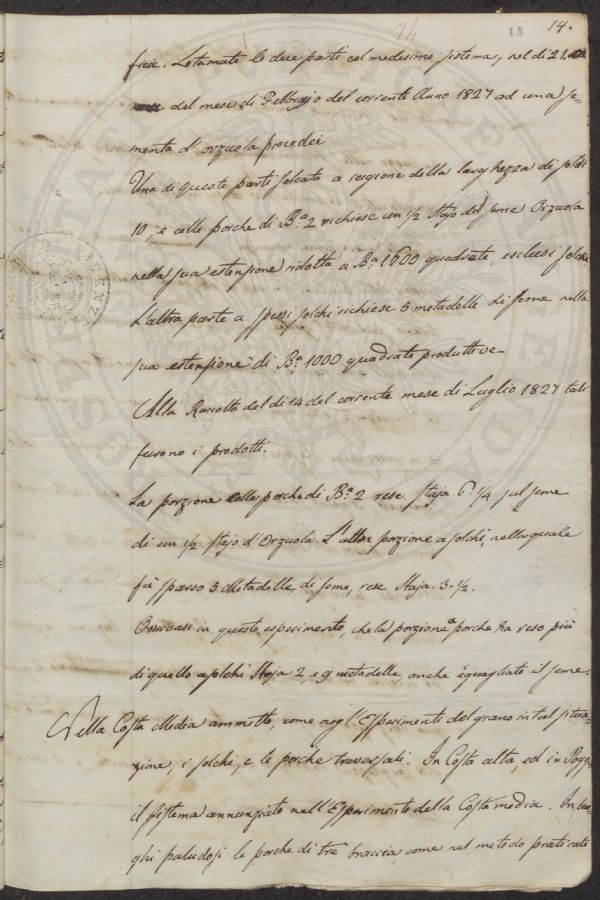 74 15 14.
ficie. Letamate le dece parti col medesimo sistema, nel di 21.
del mese di Febbrajo del corrente Anno 1827 ad una se-
menta d'orzuola procedei
Una di queste parti solcata a ragione della larghezza di soldi
10, e colle porche di Bª. 2 richiese un 1/2 Stajo di seme Orzuola
nella sua estensione ridotta a Bª. 1600 quadrate, esclusi solchi
L'altra parte a spessi solchi richiese 5 metadelle di seme nella
sua estensione di Bª. 1000 quadrate produttive-
Alla Raccolta del di 14 del corrente mese di Luglio 1827 tali
furono i prodotti.
La porzione colle porche di Bª. 2 rese Staja 6. 1/4 sul seme
di un 1/2 Stajo d'Orzuola. L'altra porzione a solchi, nella quale
fù sparso 5 Metadelle di seme, rese Staja. 3. 1/2.
Osservasi in questo esperimento, che la porzione a porche ha reso più
di quello a solchi Staja 2, e 9 metadelle anche eguagliato il seme.
Nella Costa Media ammetto, come negl'Esperimenti del grano in tal situa-
zione, i solchi, e le porche traversali. In Costa alta, ed in Poggio
il sistema annunziato nell'Esperimento della Costa media. In luo-
ghi paludosi le porche di tre braccia, come nel metodo praticato